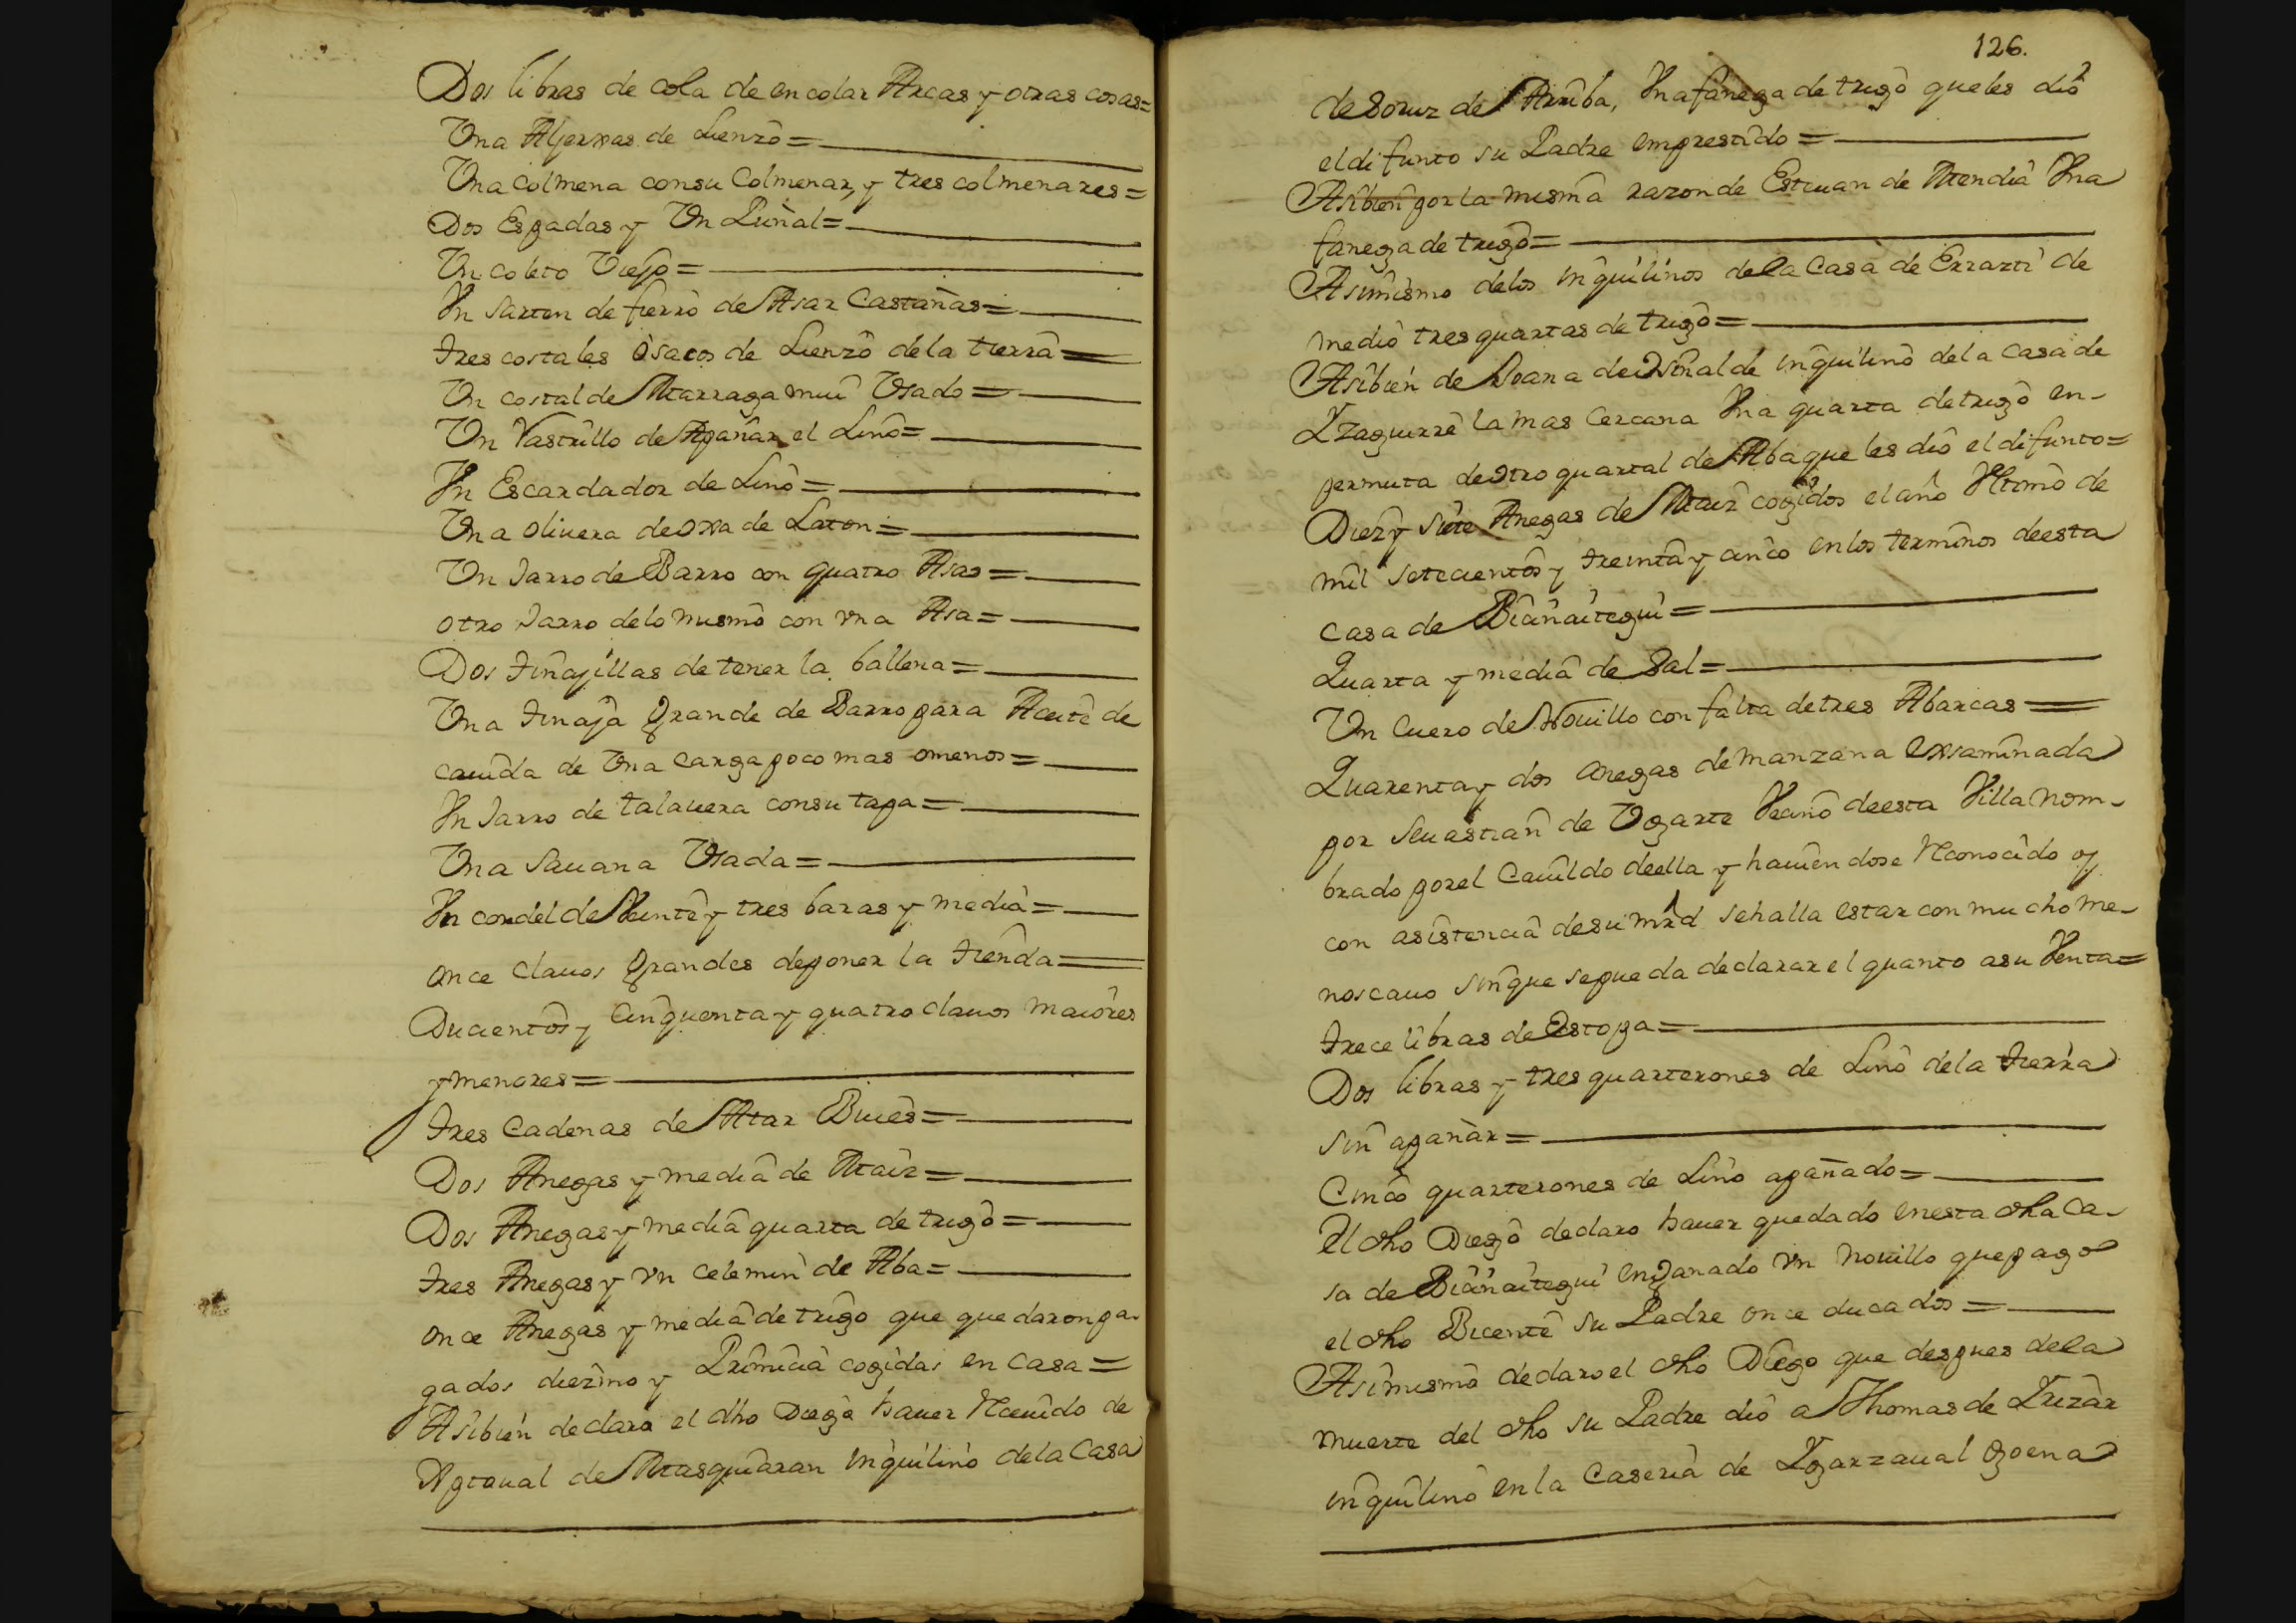 Dos libras de cola de encolar Arcas y otras cosas=
Una Aljerxas de Lienzo=
Una Colmena con su Colmenar, y tres colmenares=
Dos Espadas y Un Puñal=
Un coleto Viejo=
Un Sarten de fierro de Asar Castañas=
Tres costales o sacos de Lienzo de la tierra=
Un costal de Marraga mui Usado=
Un Rastrillo de Apañar el Lino=
Un Escardador de Lino=
Una olivera de oxa de Laton=
Un Jarro de Barro con quatro Asas=
otro Jarro de lo mismo con vna Asa=
Dos tinajillas de tener la ballena=
Una tinaja grande de Barro para Aceite de
cauida de Una Carga poco mas omenos=
Un Jarro de talauera con su tapa=
Una Sauana Usada=
Un cordel de Veinte y tres baras y media=
once Clauos grandes de poner la tienda=
Ducientos y Cinquenta y quatro clauos maiores
y menores=
tres Cadenas de Atar Buies=
Dos Anegas y media de Maiz=
Dos Anegas y media quarta de trigo=
tres Anegas y vn celemin de Aba=
once Anegas y media de trigo que quedaron pa-
gados diezmo y Primicia cogidas en casa=
Asibien declara el dho Diego hauer Receuido de
de Masquiaran inquilino de la Casa
126.
de Soruz de Arriba, Una fanega de trigo que les dió
el difunto su Padre emprestido=
Asibien por la misma razon de Esteuan de Mendia Una
fanega de trigo=
Asimismo de los inquilinos de la Casa de Errarti de
medio tres quartas de trigo=
Asibien de Joana de inquilino de la casa de
Yzaguirre la mas Cercana Una quarta de trigo en-
permuta de otro quartal de Aba que les dió el difunto=
Diez y siete Anegas de Maiz cogidos el año Ultimo de
mil setecientos y treinta y cinco en los terminos de esta
casa de Biañaitegui=
Quarta y media de Sal=
Un Cuero de Nouillo con falta de tres Abarcas=
Quarenta y dos anegas de manzana exsaminada
por Seuastian de Vgarte Vecino de esta Villa nom-
brado por el Cauildo de ella y hauiendose Reconocido oy
con asistencia de su mrd se halla estar con mucho me-
noscauo sin que se pueda declarar el quanto a su Venta=
trece libras de Estopa=
Dos libras y tres quarterones de Lino de la tierra
sin apañar=
Cinco quarterones de Lino apañado=
El dho Diego declaro hauer quedado en esta dha Ca-
sa de Biañaitegui en ganado vn nouillo que pago
el dho Bicente su Padre once ducados=
Asimismo declaro el dho Diego que despues de la
muerte del dho su Padre dió a Thomas de Yrizar
inquilino en la Caseria de Ygarzaual goena